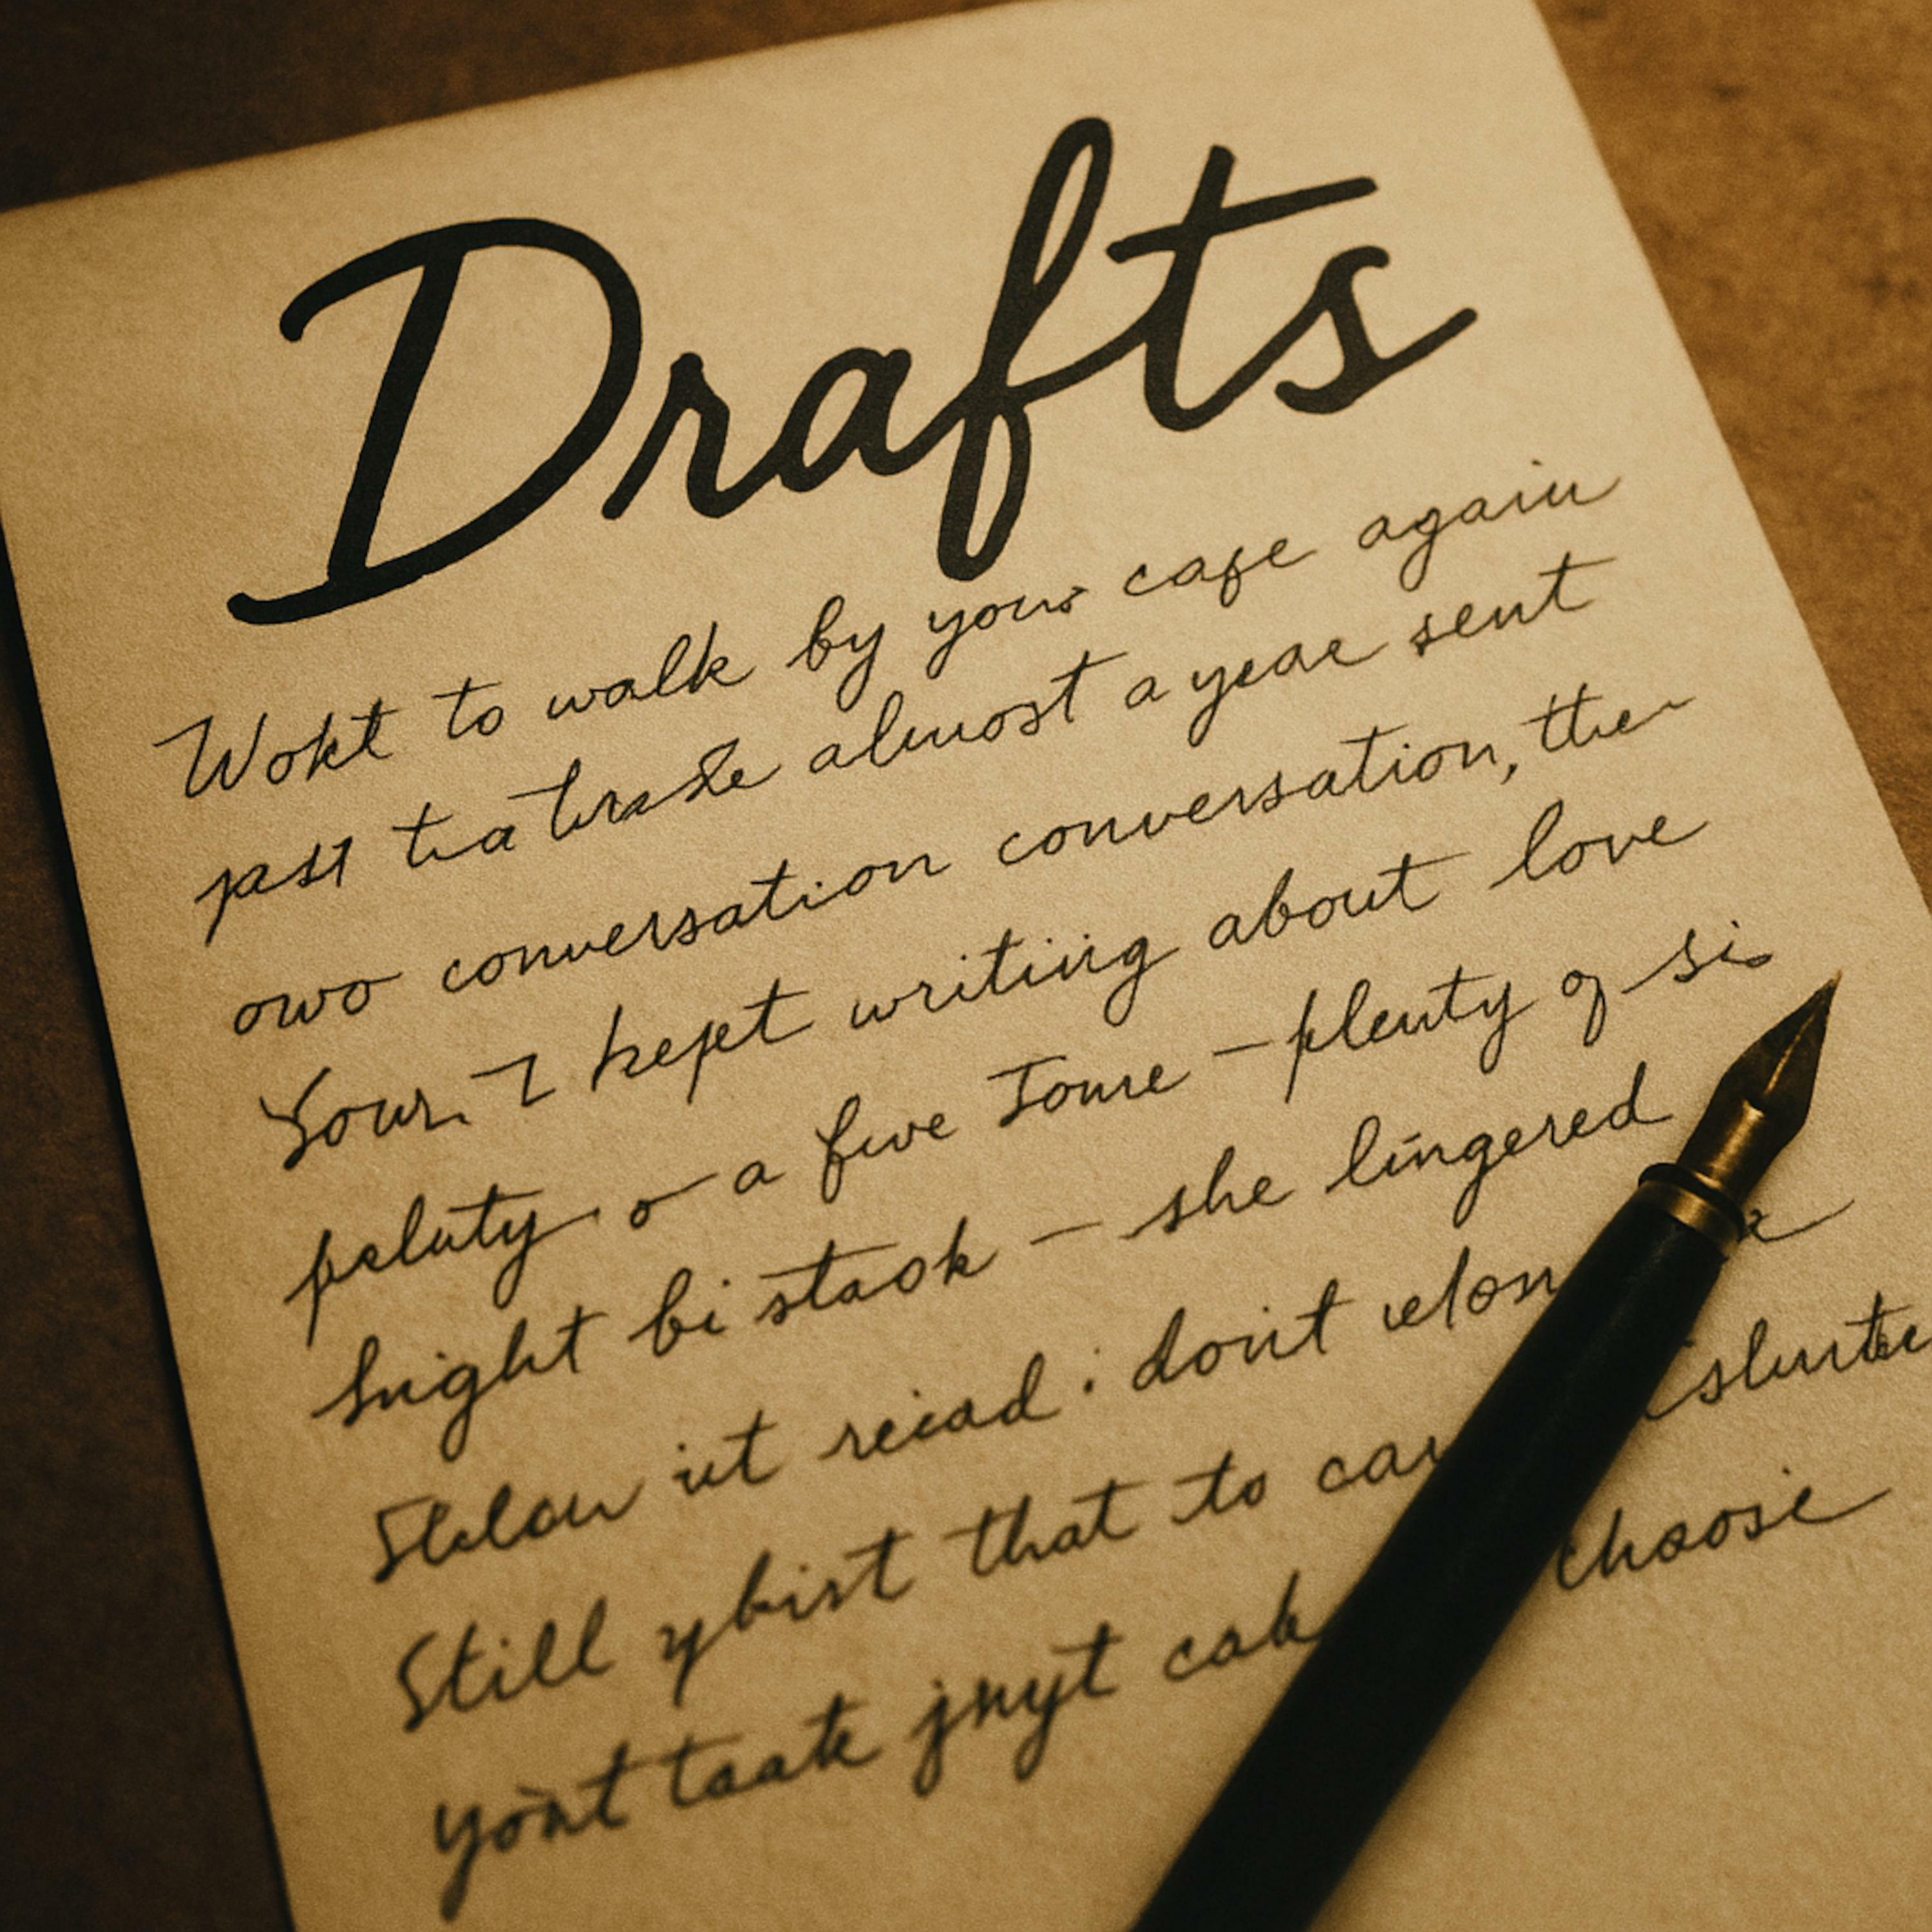 Drafts
Wokt to walk by your cafe again
past almost a year sent
owo conversation conversation, the
Your, I kept writing about love
peluty o a five Tome – plenty of si
hnight bi staok – she lingered
ut reiad : don't
Still ybist that to can
yont taate jnyt cak choose